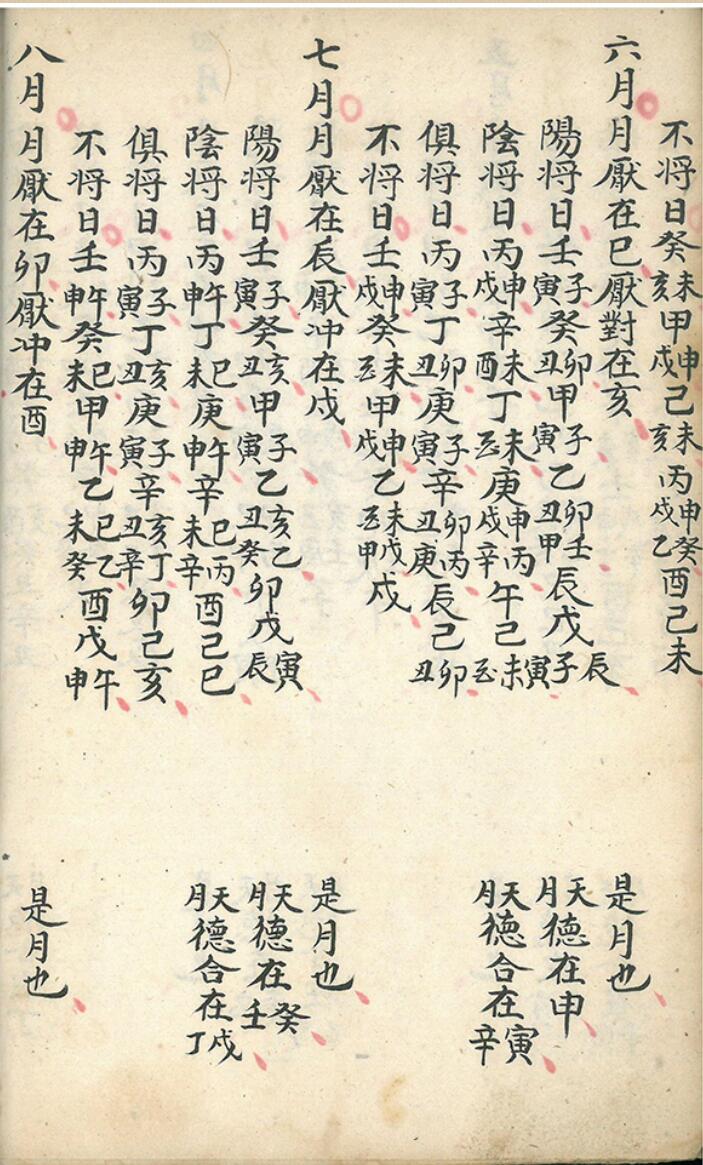 不将日癸未亥甲申戌己未亥丙申戌癸乙酉己未
六月月厭在巳厭對在亥 是月也
陽将日壬子寅癸卯丑甲子寅乙卯丑壬甲辰戊辰子寅 天月德在申
陰将日丙申戌辛未酉丁未巳庚申戌丙辛午己未巳 天月德合在寅辛
俱将日丙子寅丁卯丑庚子寅辛卯丑丙庚辰己卯丑
不将日壬申戌癸未巳甲申戌乙未巳戊甲戌
七月月厭在辰厭冲在戌 是月也
陽将日壬子寅癸亥丑甲子寅乙亥丑乙癸卯戊寅辰 天月德在癸壬
陰将日丙午申丁巳未庚午申辛巳未丙辛酉己巳 天月德合在戊丁
俱将日丙子寅丁亥丑庚子寅辛亥丑丁辛卯己亥
不将日壬午申癸巳未甲午申乙巳未乙癸酉戊午申
八月月厭在卯厭冲在酉 是月也